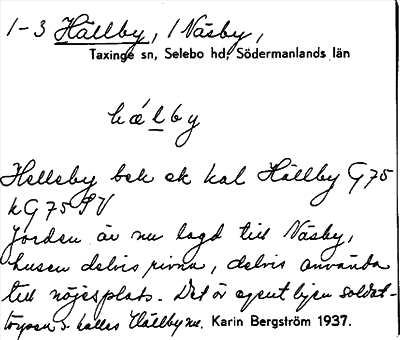 1-3 Hällby, /Näsby,
Taxinge sn, Selebo hd, Södermanlands län
hǽlby
Helleby bek ek kal Hällby G 75
kG 75 SV
Jorden är nu lagd till Näsby,
husen delvis rivna, delvis använda
till nöjesplats. Det är egentligen soldat-
torpen s. kallas Hällbyne. Karin Bergström 1937.